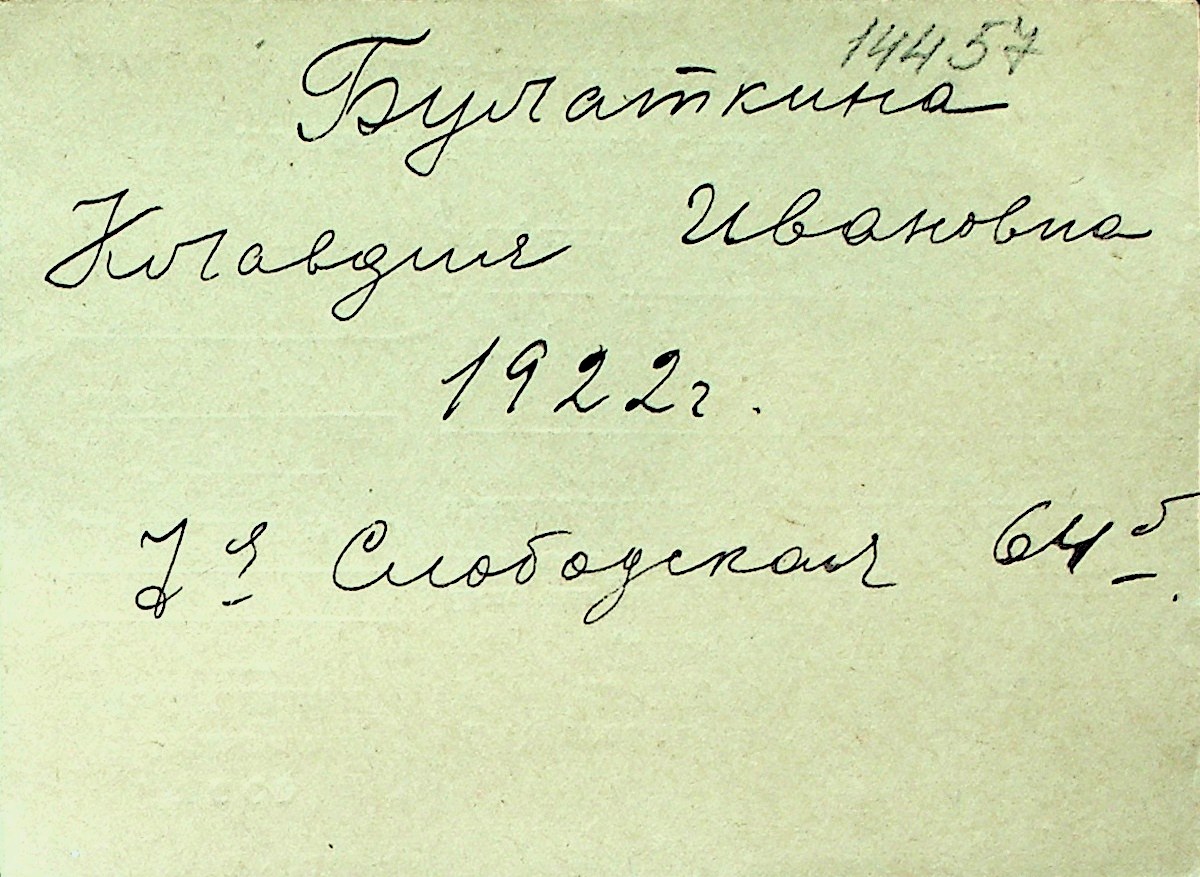 14457
Булаткина
Клавдия Ивановна
1922г.
7я Слободская 64б.